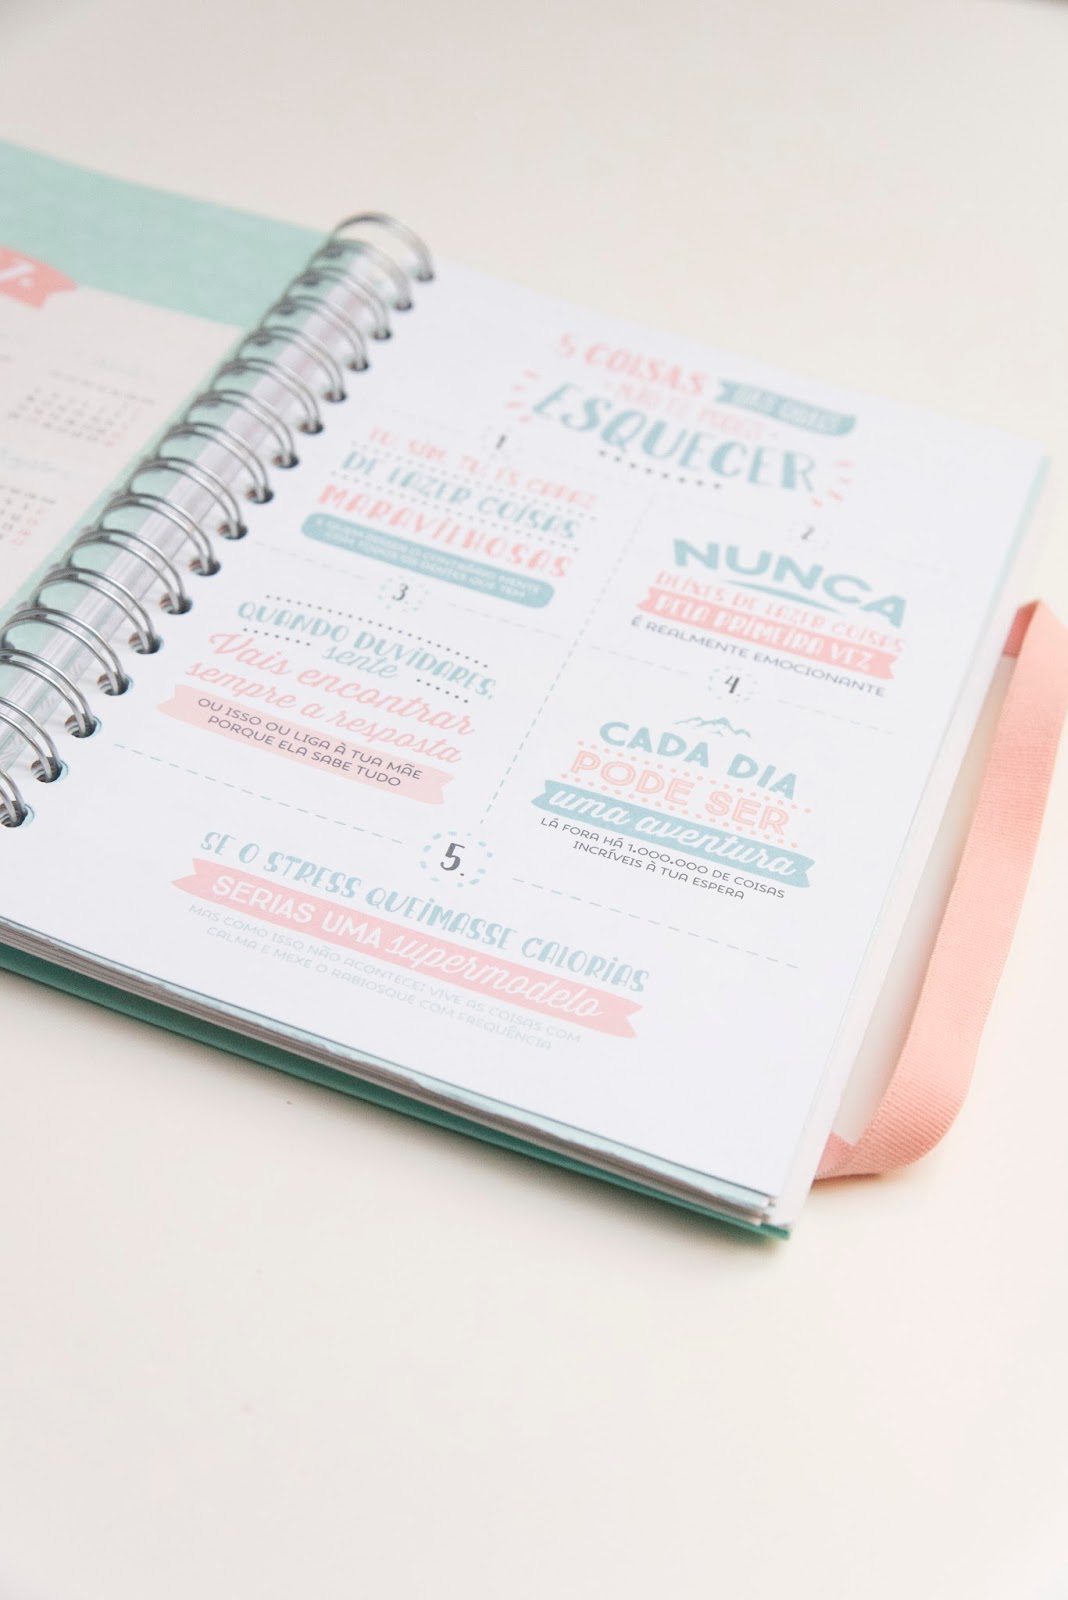 5 COISAS DAS QUAIS
NÃO TE PODES
ESQUECER
1
TU, SIM, TU, ÉS CAPAZ
DE FAZER COISAS
MARAVILHOSAS
E QUEM DISSER O CONTRÁRIO MENTE
COM TODOS OS DENTES QUE TEM
2
NUNCA
DEIXES DE FAZER COISAS
PELA PRIMEIRA VEZ
É REALMENTE EMOCIONANTE
3.
QUANDO DUVIDARES,
sente
Vais encontrar
sempre a resposta
OU ISSO OU LIGA À TUA MÃE
PORQUE ELA SABE TUDO
4
CADA DIA
PODE SER
uma aventura
LÁ FORA HÁ 1.000.000 DE COISAS
INCRÍVEIS À TUA ESPERA
5.
SE O STRESS QUEIMASSE CALORIAS
SERIAS UMA supermodelo
MAS COMO ISSO NÃO ACONTECE: VIVE AS COISAS COM
CALMA E MEXE O RABIOSQUE COM FREQUÊNCIA